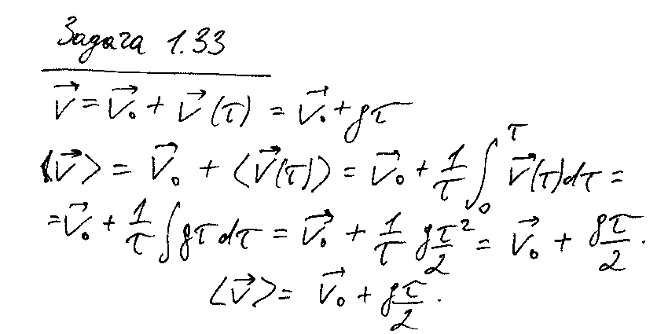 Задача 1.33
v⃗ = v⃗₀ + v⃗(τ) = v⃗₀ + gτ
⟨v⃗⟩ = v⃗₀ + ⟨v⃗(τ)⟩ = v⃗₀ + 1/τ ∫₀^τ v⃗(τ)dτ =
= v⃗₀ + 1/τ ∫gτdτ = v⃗₀ + 1/τ gτ²/2 = v⃗₀ + gτ/2.
⟨v⃗⟩ = v⃗₀ + gτ/2.